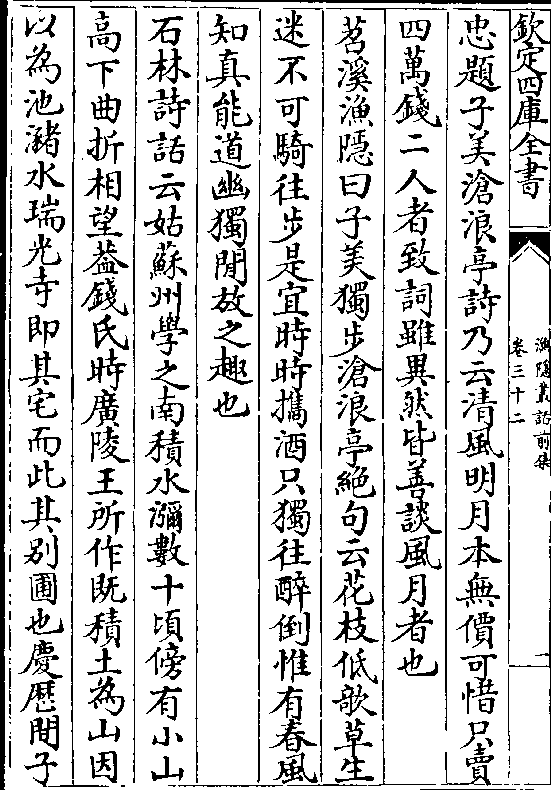 欽定四庫全書
漁隱叢話前集
卷三十二
一
忠題子美滄浪亭詩乃云清風明月本無價可惜只賣
四萬錢二人者致詞雖異然皆善談風月者也
苕溪漁隱曰子美獨步滄浪亭絕句云花枝低歌草生
迷不可騎往步是宜時時攜酒只獨往醉倒惟有春風
知真能道幽獨閒放之趣也
石林詩話云姑蘇州學之南積水瀰數十頃傍有小山
高下曲折相望葢錢氏時廣陵王所作既積土為山因
以為池瀦水瑞光寺即其宅而此其别圃也慶厯間子